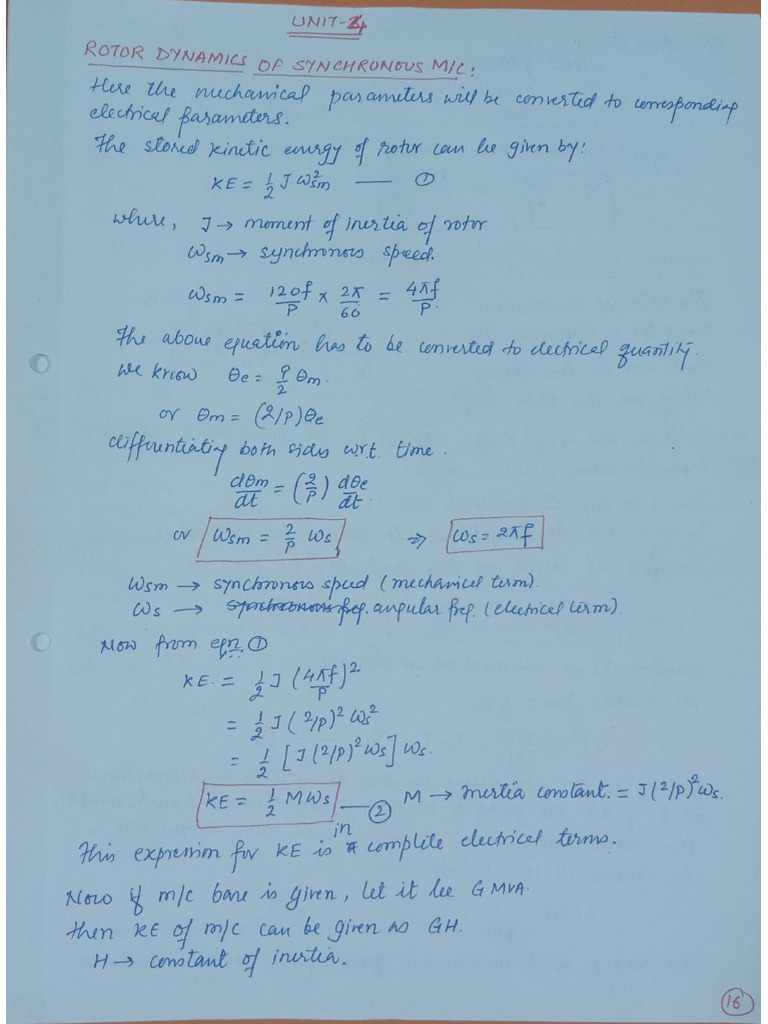 UNIT-4
ROTOR DYNAMICS OF SYNCHRONOUS M/C:
Here the mechanical parameters will be converted to corresponding
electrical parameters.
The stored kinetic energy of rotor can be given by:
KE = 1/2 J ωsm² — ①
where, J → moment of inertia of rotor
ωsm → synchronous speed.
ωsm = 120f/P × 2π/60 = 4πf/P.
The above equation has to be converted to electrical quantity.
We know θe = P/2 θm.
or θm = (2/P)θe
differentiating both sides w.r.t. time.
dθm/dt = (2/P) dθe/dt.
or ωsm = 2/P ωs ⇒ ωs = 2πf
ωsm → synchronous speed (mechanical term).
ωs → synchronous freq. angular freq. (electrical term)
Now from eqn. ①
KE. = 1/2 J (4πf/P)²
= 1/2 J (2/P)² ωs²
= 1/2 [J (2/P)² ωs] ωs.
KE = 1/2 Mωs — ② M → inertia constant. = J(2/P)² ωs.
This expression for KE is in complete electrical terms.
Now if m/c base is given, let it be G MVA.
then KE of m/c can be given as GH.
H → constant of inertia.
16